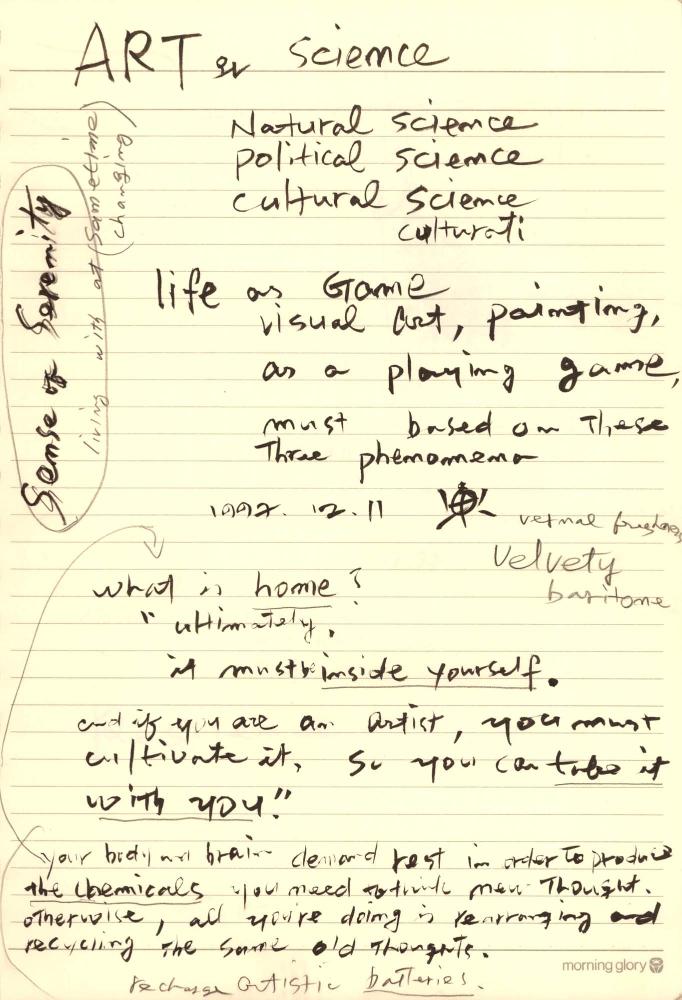 ART or science
Natural science
political science
cultural science
culturati
Sense of Serenity
living with at (sometime
changing)
life as Game
visual art, painting,
as a playing game,
must based on These
Three phenomena
1997. 12. 11
vernal freshness
Velvety
baritone
what is home?
"ultimately,
it must be inside yourself.
and if you are an artist, you must
cultivate it, so you can take it
with you."
your body and brain demand rest in order To produce
the chemicals you need to think new Thought.
otherwise, all you're doing is rearranging and
recycling The same old Thoughts.
recharge artistic batteries.
morning glory